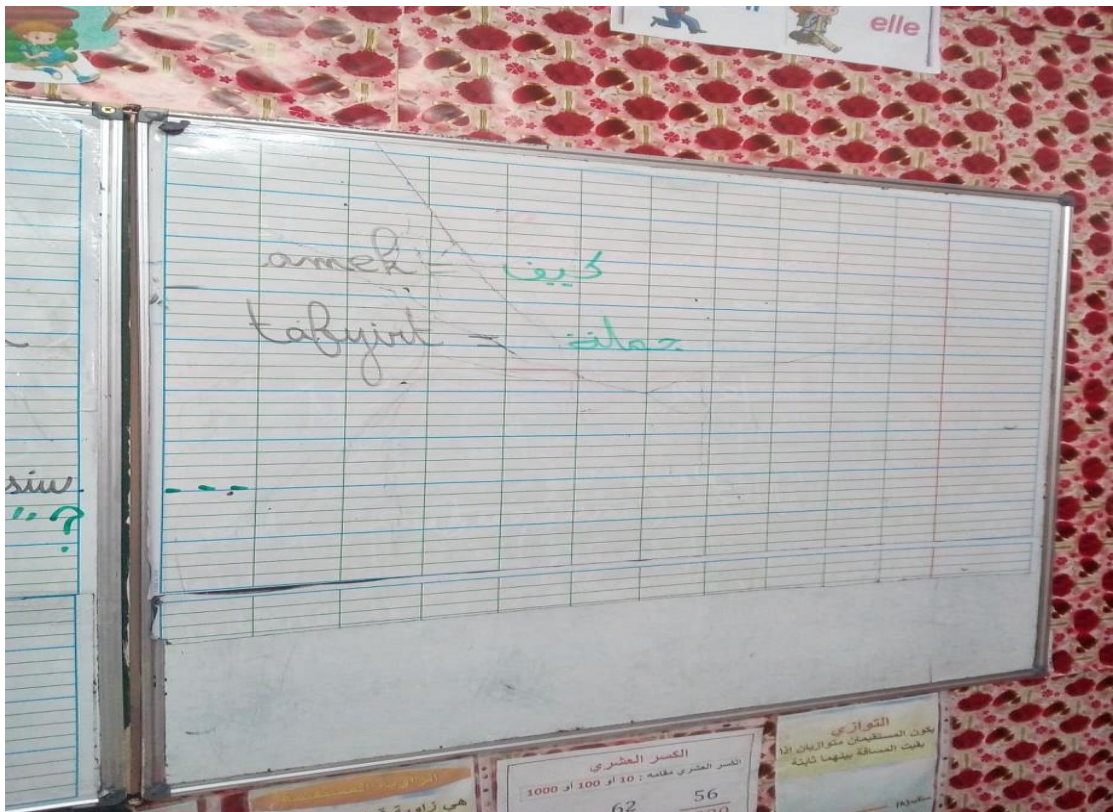 elle
amek = كيف
tafyirt = جملة
siw
" ؟
- - -
الكسر العشري
الكسر العشري مقامه : 10 أو 100 أو 1000
62 56
التوازي
يكون المستقيمان متوازيان إذا
بقيت المسافة بينهما ثابتة
هي زاوية